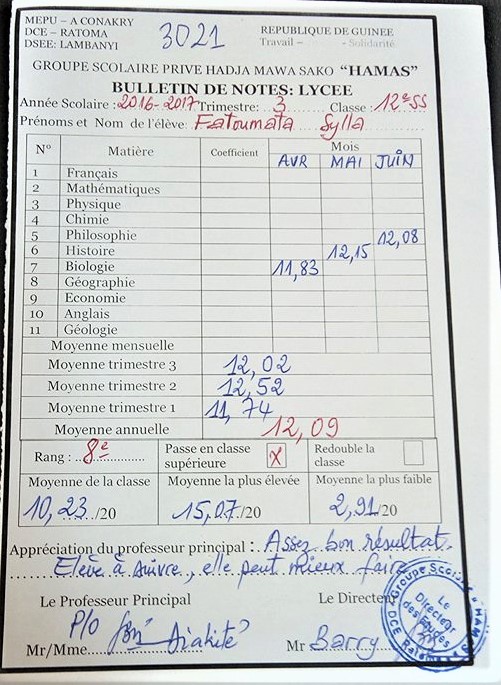 MEPU – A CONAKRY
DCE – RATOMA
DSEE: LAMBANYI
3021
REPUBLIQUE DE GUINEE
Travail – - Solidarité
GROUPE SCOLAIRE PRIVE HADJA MAWA SAKO “HAMAS”
BULLETIN DE NOTES: LYCEE
Année Scolaire : 2016-2017 Trimestre: 3 Classe : 12e SS
Prénoms et Nom de l'élève: Fatoumata Sylla
N° Matière Coefficient Mois
AVR MAI JUIN
1 Français
2 Mathématiques
3 Physique
4 Chimie
5 Philosophie 12,08
6 Histoire 12,15
7 Biologie 11,83
8 Géographie
9 Economie
10 Anglais
11 Géologie
Moyenne mensuelle
Moyenne trimestre 3 12,02
Moyenne trimestre 2 12,52
Moyenne trimestre 1 11,74
Moyenne annuelle 12,09
Rang : 8e Passe en classe supérieure X Redouble la classe
Moyenne de la classe Moyenne la plus élevée Moyenne la plus faible
10,23/20 15,07/20 2,91/20
Appréciation du professeur principal : Assez bon résultat.
Elève à suivre, elle peut mieux faire
Le Professeur Principal Le Directeur
P/o Diakité
Mr/Mme Mr Barry
DCE Groupe Scolaire "HAMAS"
Le Directeur des Etudes